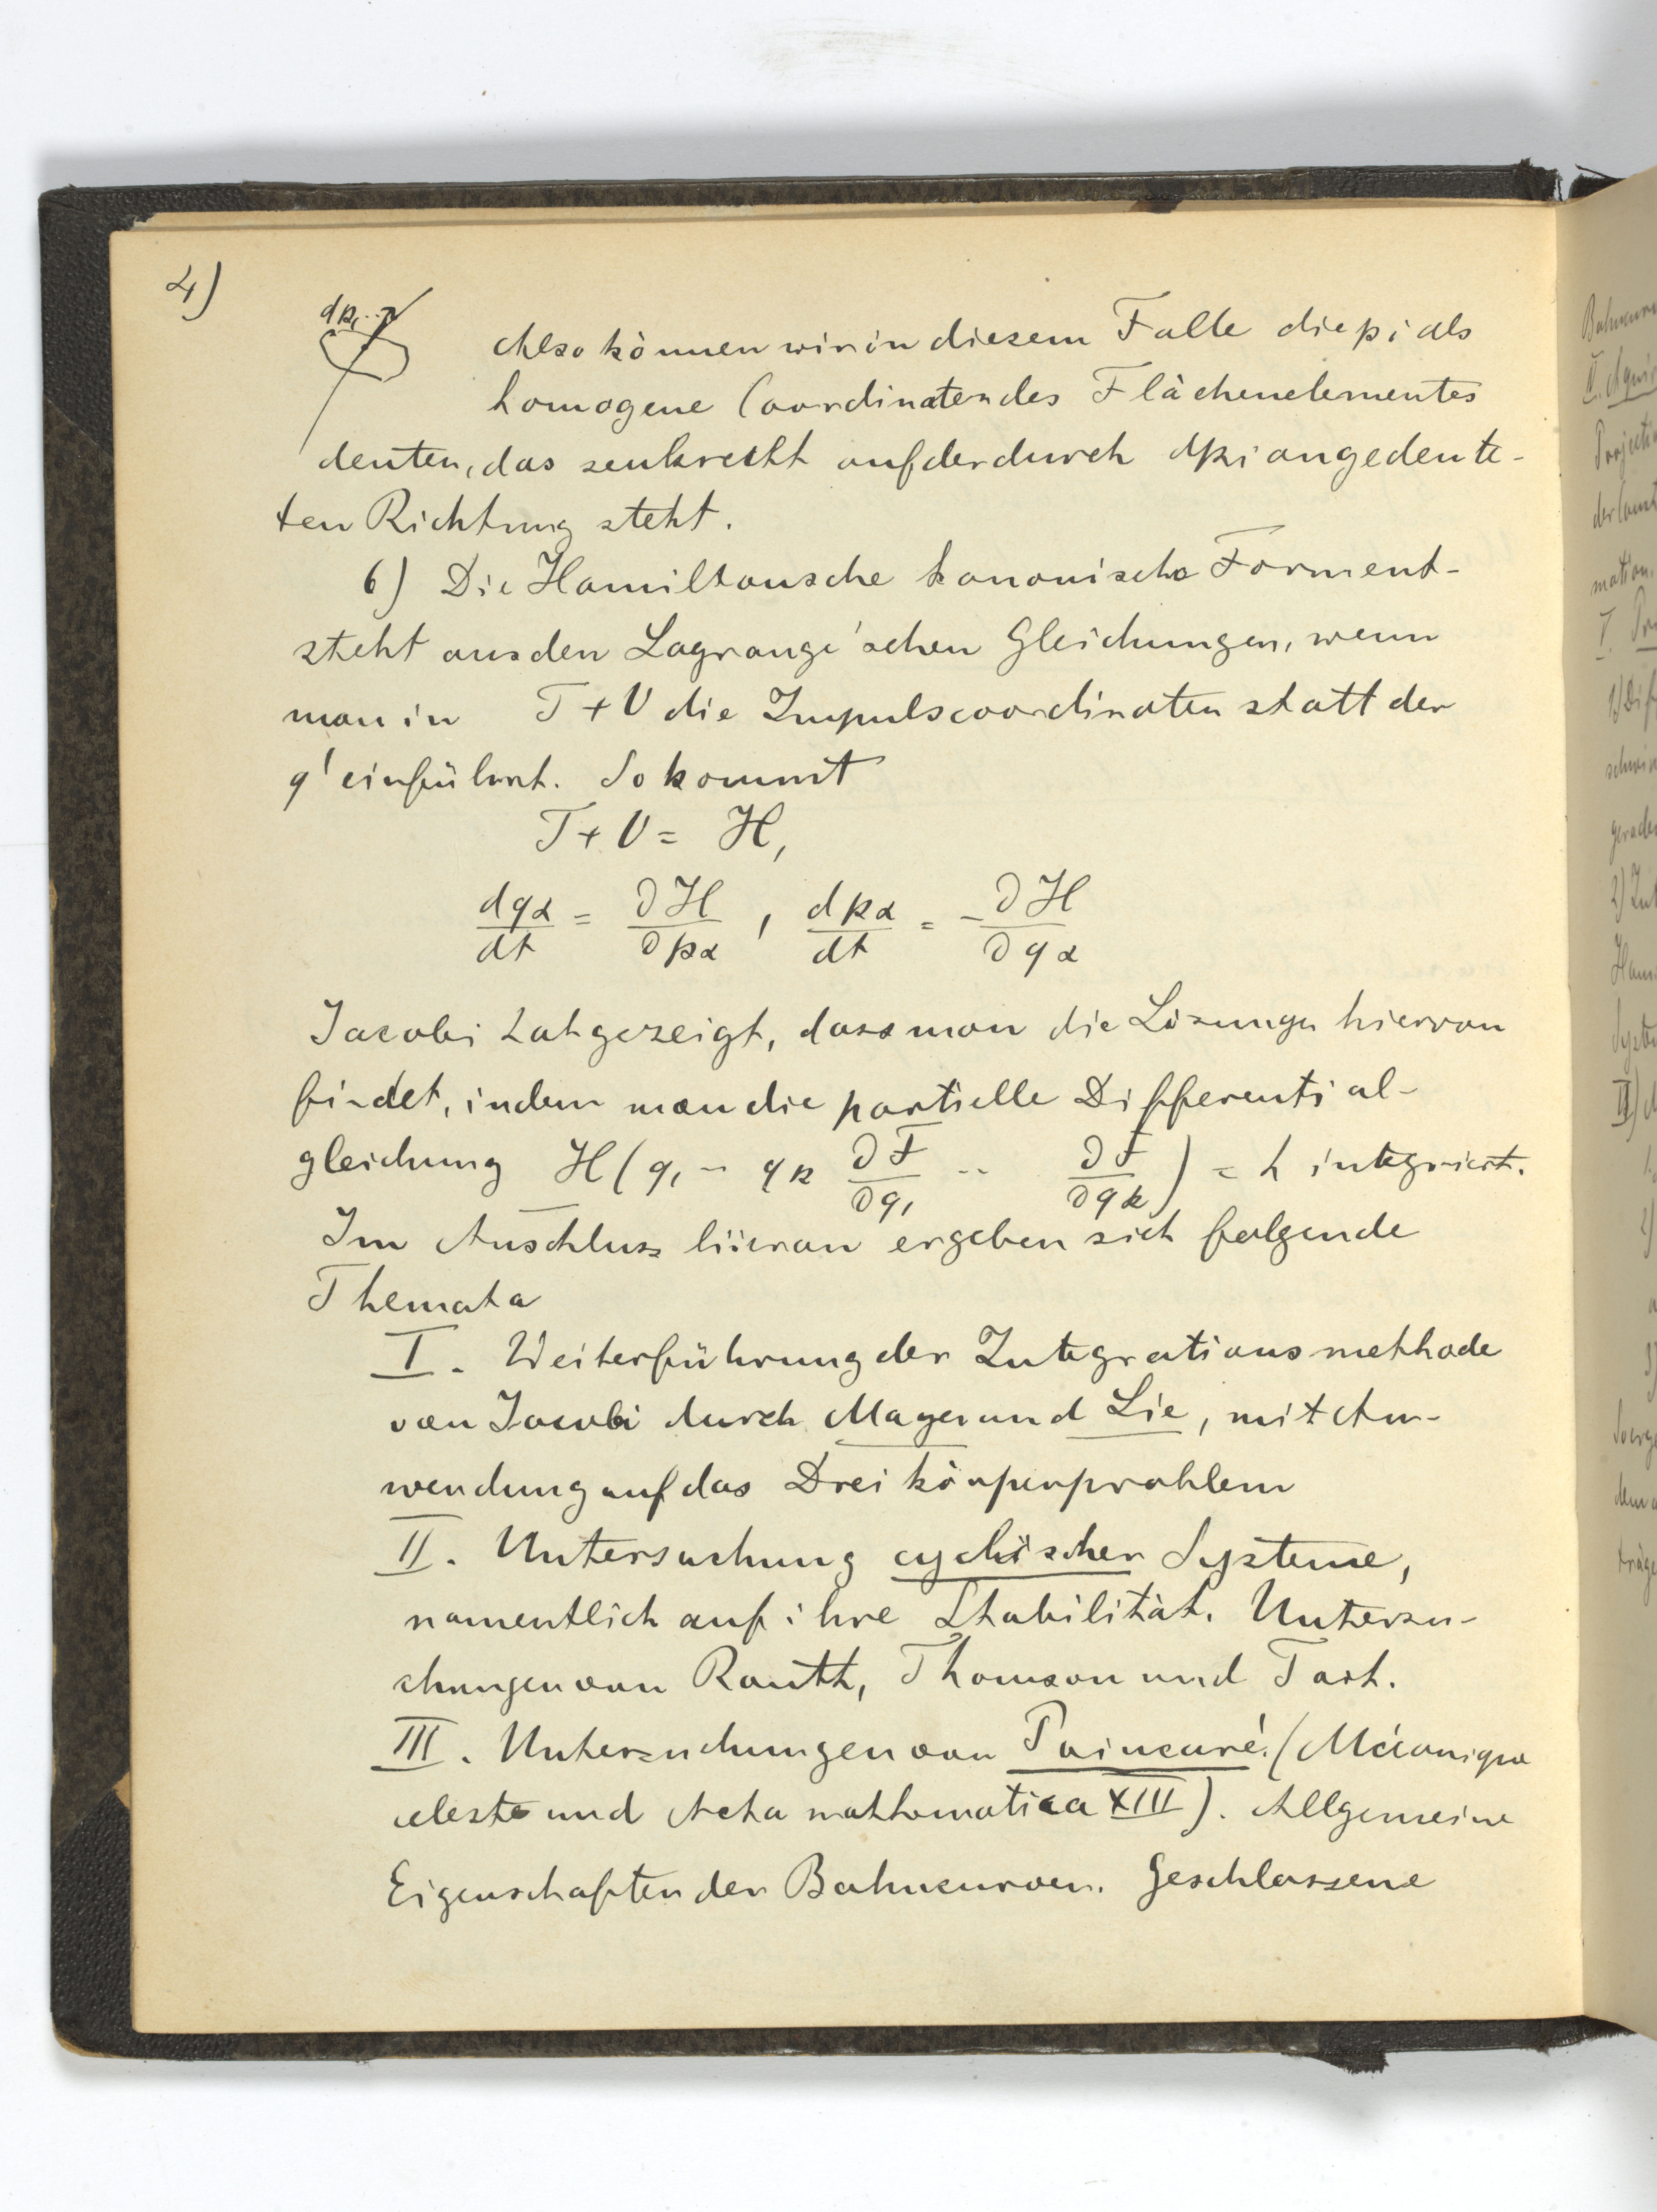 4)
dp₁...
Also können wir in diesem Falle die pi als
homogene Coordinaten des Flächenelementes
deuten, das senkrecht auf der durch dpi angedeute-
ten Richtung steht.
6) Die Hamiltonsche kanonische Form ent-
steht aus den Lagrange'schen Gleichungen, wenn
man in T+V die Impulscoordinaten statt der
q' einführt. So kommt
T+V = H,
dqα/dt = ∂H/∂pα , dpα/dt = -∂H/∂qα
Jacobi hat gezeigt, dass man die Lösungen hiervon
findet, indem man die partielle Differential-
gleichung H(q₁ - qk ∂F/∂q₁ .. ∂F/∂qk) = h integriert.
Im Anschluss hieran ergeben sich folgende
Themata
I. Weiterführung der Integrationsmethode
von Jacobi durch Mayer und Lie, mit An-
wendung auf das Dreikörperproblem
II. Untersuchung cyclischer Systeme,
namentlich auf ihre Stabilität. Untersu-
chungen von Routh, Thomson und Tait.
III. Untersuchungen von Poincaré. (Mécanique
celeste und Acta mathematica XIII). Allgemeine
Eigenschaften der Bahncurven. Geschlossene